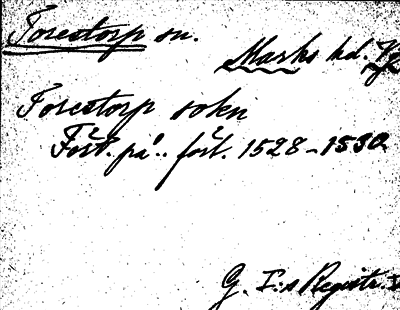 Torestorp sn.
Marks hd.
Forestorp sokn
Fört. på .. fört. 1528-1530
G. I:s Registr.